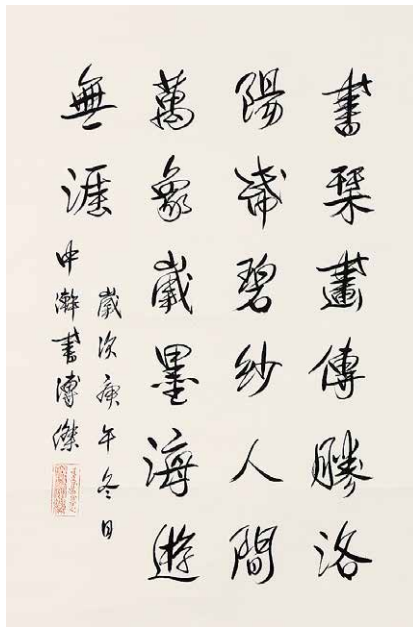 書琹畫傳勝洛
陽帋碧紗人間
萬象歲墨海遊
無涯
歲次庚午冬日
中澣書溥傑